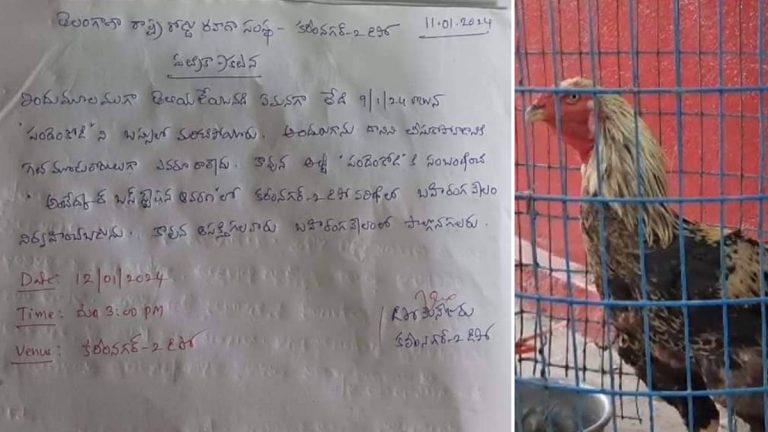 తెలంగాణా రాష్ట్ర రోడ్డు రవాణా సంస్థ - కరీంనగర్-2 డిపో 11.01.2024
పత్రికా ప్రకటన
ఇందుమూలముగా తెలియజేయునది ఏమనగా తేది 9/1/24 రోజున
'పందెంకోడి' ని బస్సులో మరిచిపోయారు. అందులకుగాను దానిని తీసుకపోవడానికి
గత మూడురోజులుగా ఎవరూ రాలేదు. కావున అట్టి 'పందెంకోడి' కి సంబంధించి
కరీంనగర్-2 డిపో పరిధిలో బహిరంగ వేలం
నిర్వహించబడును. కావున ఆసక్తిగలవారు బహిరంగ వేలంలో పాల్గొనగలరు.
Date: 12/01/2024
Time: మ 3:00 PM
Venue: కరీంనగర్-2 డిపో
డిపో మేనేజరు
కరీంనగర్-2 డిపో